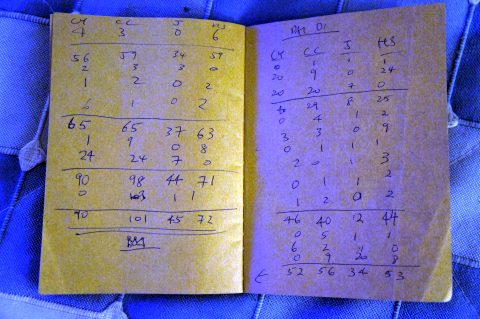 CM CC J HS
4 3 0 6
56 59 34 59
2 3 3 0
1 2 0 2
1 0 2
65 65 37 63
1 9 0 8
24 24 7 0
90 98 44 71
0 1 1
90 101 45 72
CM CC J HS
0 1 1 1
20 9 0 24
20 20 7 0
29 8 25
0 4 1 2
3 3 0 9
0 1 1
2 0 1 3
2
0 1 1
1 2 0 2
46 40 12 44
0 5 1 1
6 2 1 0
0 9 20 8
52 56 34 53